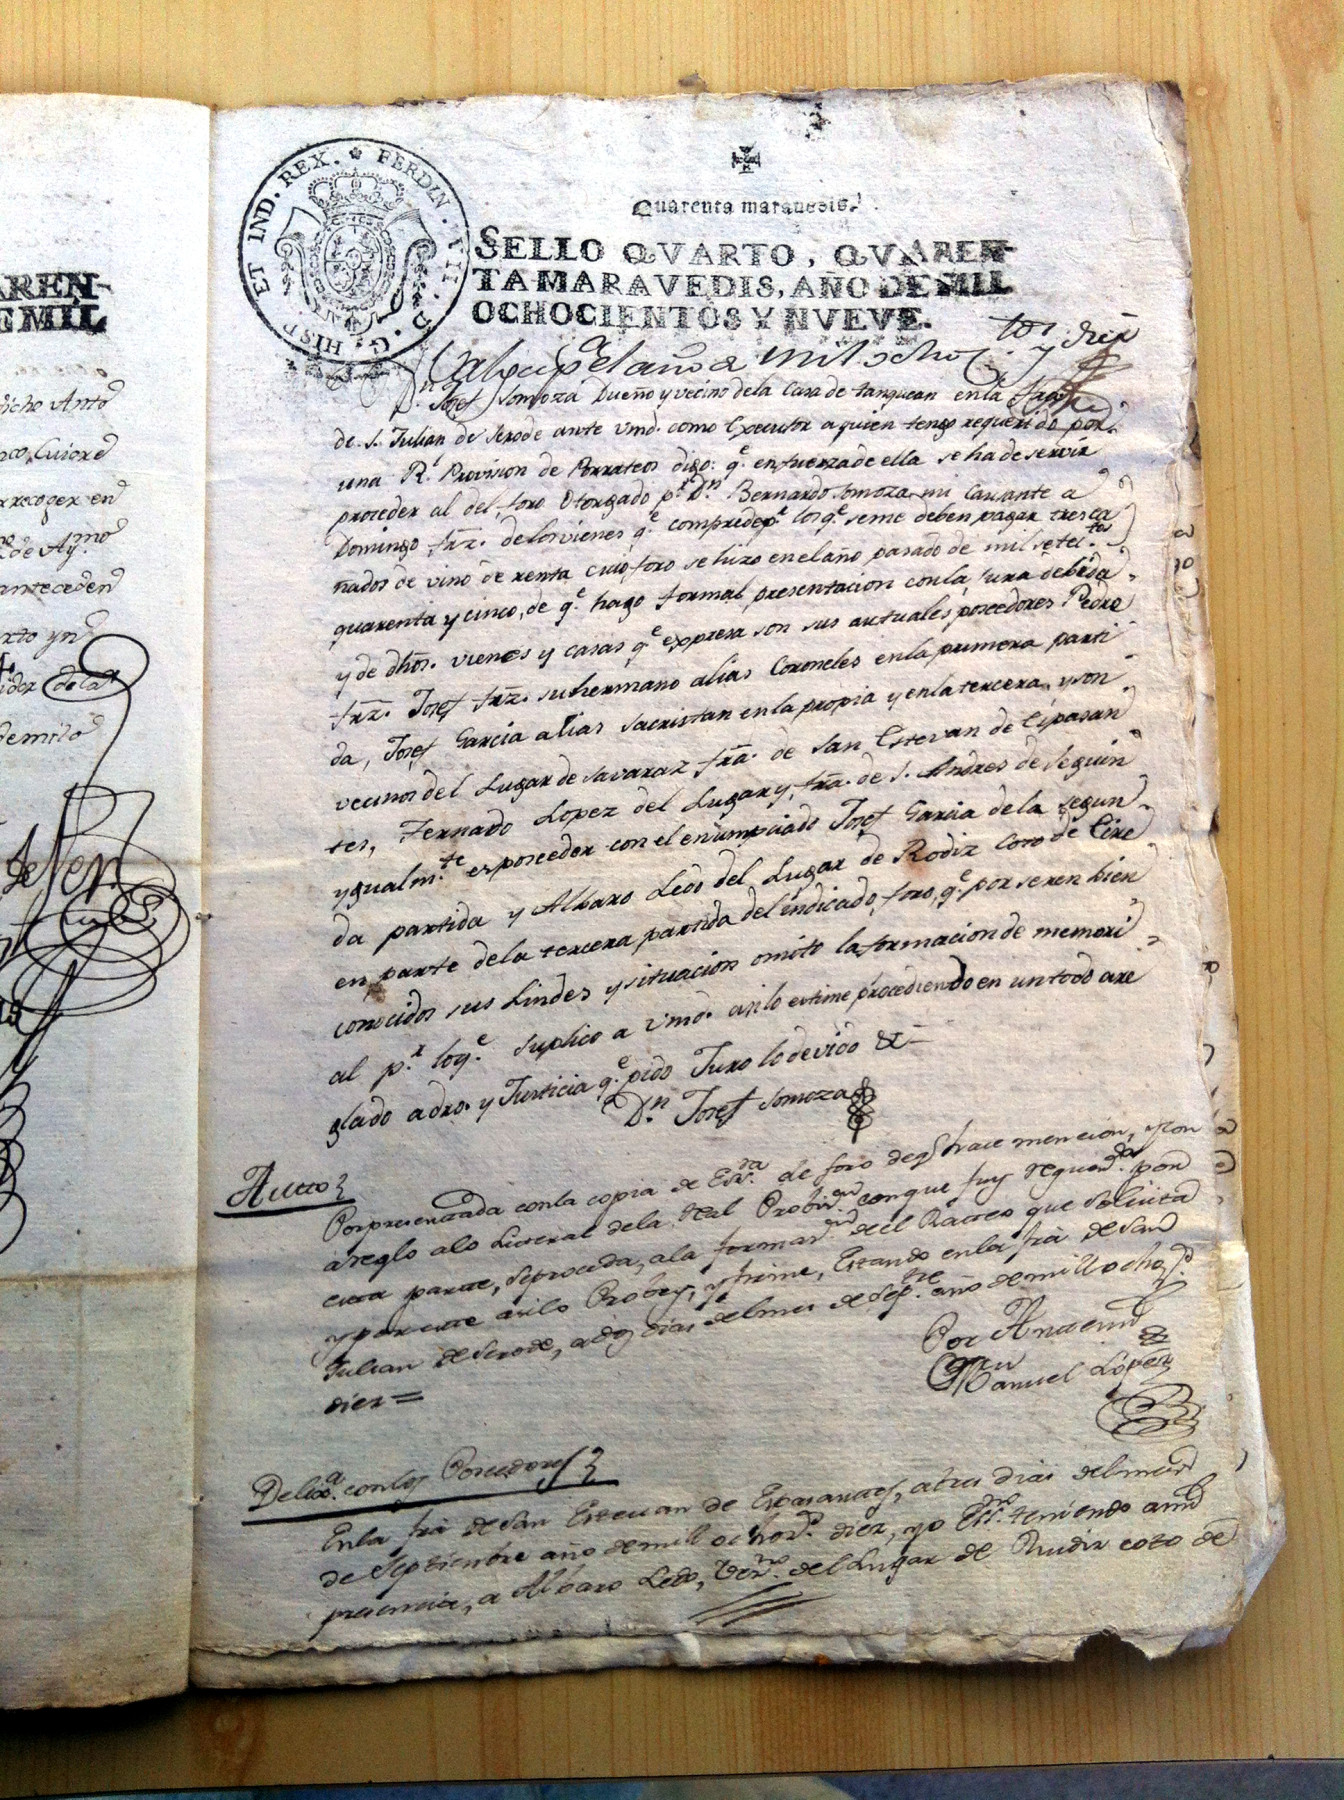 AREN-
E MIL
dicho Anto
HISP. ET IND. REX. FERDIN. VII. D. G.
Quarenta maravedis.
SELLO QVARTO, QVAREN-
TA MARAVEDIS, AÑO DE MIL
OCHOCIENTOS Y NVEVE.
Valga pa el año de mil ocho tos y diez
Dn. Josef Somoza Dueño y vecino de la Casa de tanquean en la fra
de S. Julian de Serode ante vmd. como Executor a quien tengo requerido por
una Rl. Provision de Prorrateos digo: qe. en fuerza de ella se ha de servir
proceder al del foro Otorgado pr. Dn. Bernardo Somoza mi Causante a
Domingo frz. de los vienes qe. comprede pr. los qe. se me deben pagar tres ca
ñados de vino de renta cuio foro se hizo en el año pasado de mil setectos
quarenta y cinco, de qe. hago formal presentacion con la jura debida
y de dhos. vienes y casas qe expresa son sus actuales poseedores Pedro
frz. Josef frz. su hermano alias Coroneles en la primera parti
da, Josef Garcia alias Sacristan en la propia y en la tercera, y son
vecinos del Lugar de Savaraz fra. de San Estevan de Espasan
tes, Fernardo Lopez del Lugar y fra. de S. Andres de Seguin
ygualmte. es poseedor con el enumpciado Josef Garcia de la segun
da partida y Albaro Ledo del Lugar de Rodiz Coto de Cire
en parte de la tercera partida del indicado foro, qe. por ser en bien
conocidos sus Lindes y situacion omito la formacion de memori
al pr. loqe. Suplico a vmd. asi lo estime procediendo en un todo arre
glado a dro. y Justicia qe. pido Juro lo devido &-
Dn. Josef Somoza
Autto
Por presentada con la copia de Esra. de foro de q hace mencion, y con
arreglo alo Literal de la Real Probisn. con que fuy requerdo. por
esta parte, se proceda, a la formacn. del Ratteo que solicita
y por este asi lo Probeyo, y firme, Estando en la fra de San
Julian de Serode, a dos dias del mes de Sepre. año de mill ochos.
diez =
Por Antemi
Manuel López
Delixa. con los Poseedores
En la fra de San Estevan de Espasantes, a tres dias del mes
de Septiembre año de mill ochos. diez, yo Esno. teniendo ami
presencia, a Albaro Ledo, Vezno. del Lugar de Rudiz coto de